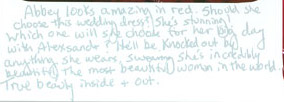 Abbey looks amazing in red. Should she
choose this wedding dress? She's stunning!
Which one will she choose for her big day
with Alexsandr? He'll be knocked out by
anything she wears, she's incredibly
beautiful. The most beautiful woman in the world.
True beauty inside + out.